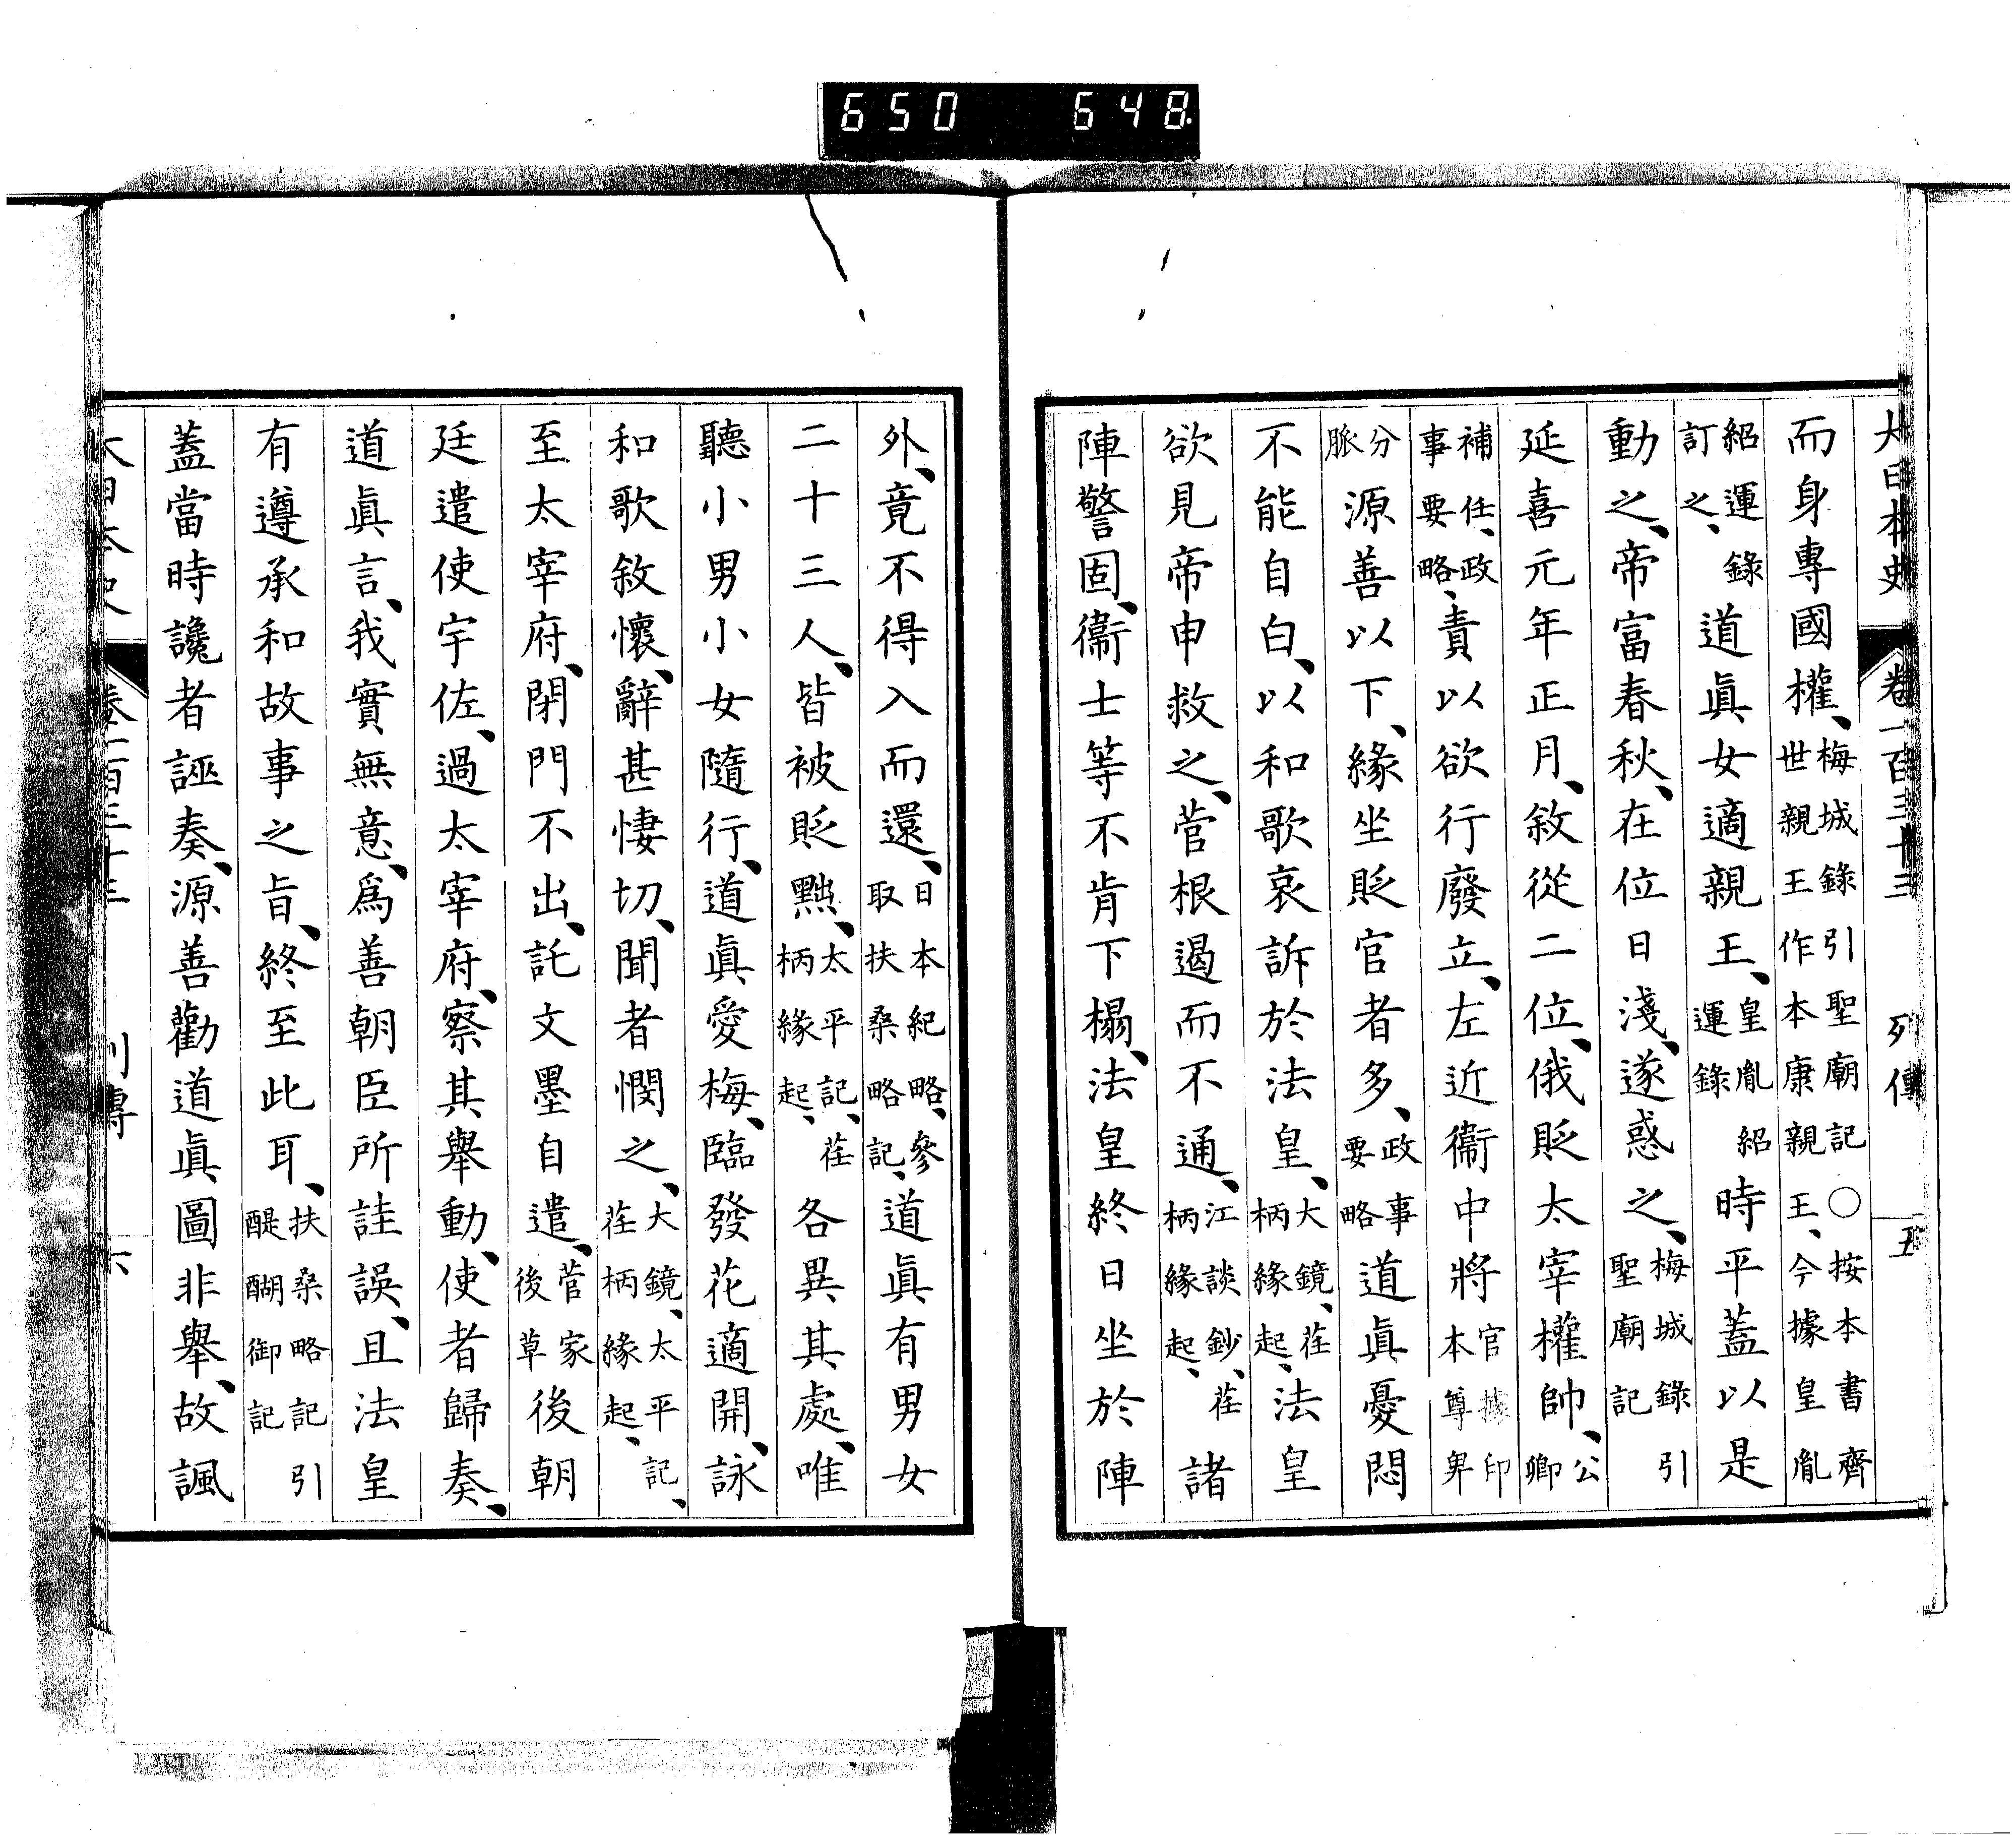 650 648
大日本史 卷一百三十三 列傳 五
而身專國權、梅城錄引聖廟記○按本書齊世親王作本康親王、今據皇胤
紹運錄訂之、道眞女適親王、皇胤紹運錄時平蓋以是
動之、帝富春秋、在位日淺、遂惑之、梅城錄引聖廟記
延喜元年正月、敘從二位、俄貶太宰權帥、公卿
補任、政事要略、責以欲行廢立、左近衞中將官據印本尊卑
分脈源善以下、緣坐貶官者多、政事要略道眞憂悶
不能自白、以和歌哀訴於法皇、大鏡、荏柄緣起、法皇
欲見帝申救之、菅根遏而不通、江談鈔、荏柄緣起、諸
陣警固、衞士等不肯下榻、法皇終日坐於陣
外、竟不得入而還、日本紀略、參取扶桑略記、道眞有男女
二十三人、皆被貶黜、太平記、荏柄緣起、各異其處、唯
聽小男小女隨行、道眞愛梅、臨發花適開、詠
和歌敘懷、辭甚悽切、聞者憫之、大鏡、太平記、荏柄緣起、
至太宰府、閉門不出、託文墨自遣、菅家後草後朝
廷遣使宇佐、過太宰府、察其舉動、使者歸奏、
道眞言、我實無意、爲善朝臣所詿誤、且法皇
有遵承和故事之旨、終至此耳、扶桑略記引醍醐御記
蓋當時讒者誣奏、源善勸道眞圖非舉、故諷
大日本史 卷一百三十三 列傳 六